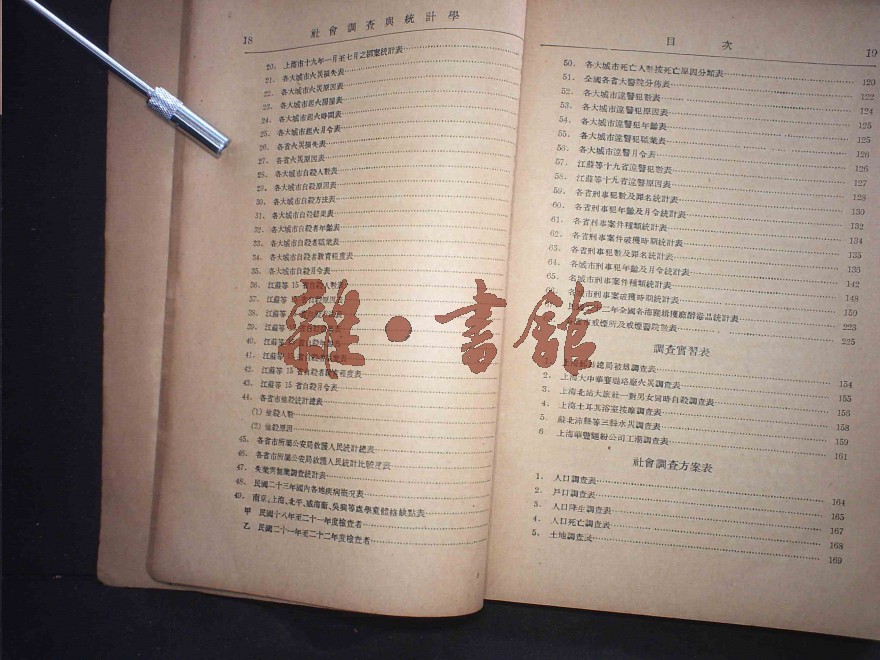 18 社會調查與統計學
20. 上海市十九年一月至七月之綁案統計表
21. 各大城市火災損失表
22. 各大城市火災原因表
23. 各大城市起火場屋表
24. 各大城市起火時間表
25. 各大城市起火月令表
26. 各省火災損失表
27. 各省火災原因表
28. 各大城市自殺人數表
29. 各大城市自殺原因表
30. 各大城市自殺方法表
31. 各大城市自殺結果表
32. 各大城市自殺者年齡表
33. 各大城市自殺者職業表
34. 各大城市自殺者教育程度表
35. 各大城市自殺月令表
36. 江蘇等 15 省自殺人數表
37. 江蘇等
38. 江蘇等
39. 江蘇等
40. 江蘇等
41. 江蘇等
42. 江蘇等 15 省自殺者教育程度表
43. 江蘇等 15 省自殺月令表
44. 各省市他殺統計總表
(1) 他殺人數
(2) 他殺原因
45. 各省市所屬公安局救護人民統計總表
46. 各省市所屬公安局救護人民統計比較表
47. 失業與無業調查統計表
48. 民國二十三年國內各地疾病概況表
49. 南京、上海、北平、威海衞、吳興等處學童體格缺點表
甲 民國十八年至二十一年度檢查者
乙 民國二十一年至二十二年度檢查者
目次 19
50. 各大城市死亡人數按死亡原因分類表 120
51. 全國各省大醫院分佈表 122
52. 各大城市違警犯數表 124
53. 各大城市違警犯原因表 125
54. 各大城市違警犯年齡表 125
55. 各大城市違警犯職業表 126
56. 各大城市違警月令表 126
57. 江蘇等十九省違警犯數表 127
58. 江蘇等十九省違警原因表 128
59. 各省刑事犯數及罪名統計表 130
60. 各省刑事犯年齡及月令統計表 132
61. 各省刑事案件種類統計表 134
62. 各省刑事案件破獲時期統計表 135
63. 各省刑事犯數及罪名統計表 136
64. 各城市刑事犯年齡及月令統計表 142
65. 各城市刑事案件種類統計表 148
66. 各城市刑事案破獲時期統計表 150
二年全國各海關緝獲麻醉毒品統計表 223
市戒煙所及戒煙醫院數表 225
調查實習表
1. 總局被燬調查表 154
2. 上海大中華賽璐珞廠火災調查表 155
3. 上海北站大旅社一對男女同時自殺調查表 156
4. 上海土耳其浴室按摩調查表 158
5. 蘇北沛縣等三縣水災調查表 159
6 上海華豐麵粉公司工潮調查表 161
社會調查方案表
1. 人口調查表 164
2. 戶口調查表 165
3. 人口降生調查表 167
4. 人口死亡調查表 168
5. 土地調查表 169
雜·書館